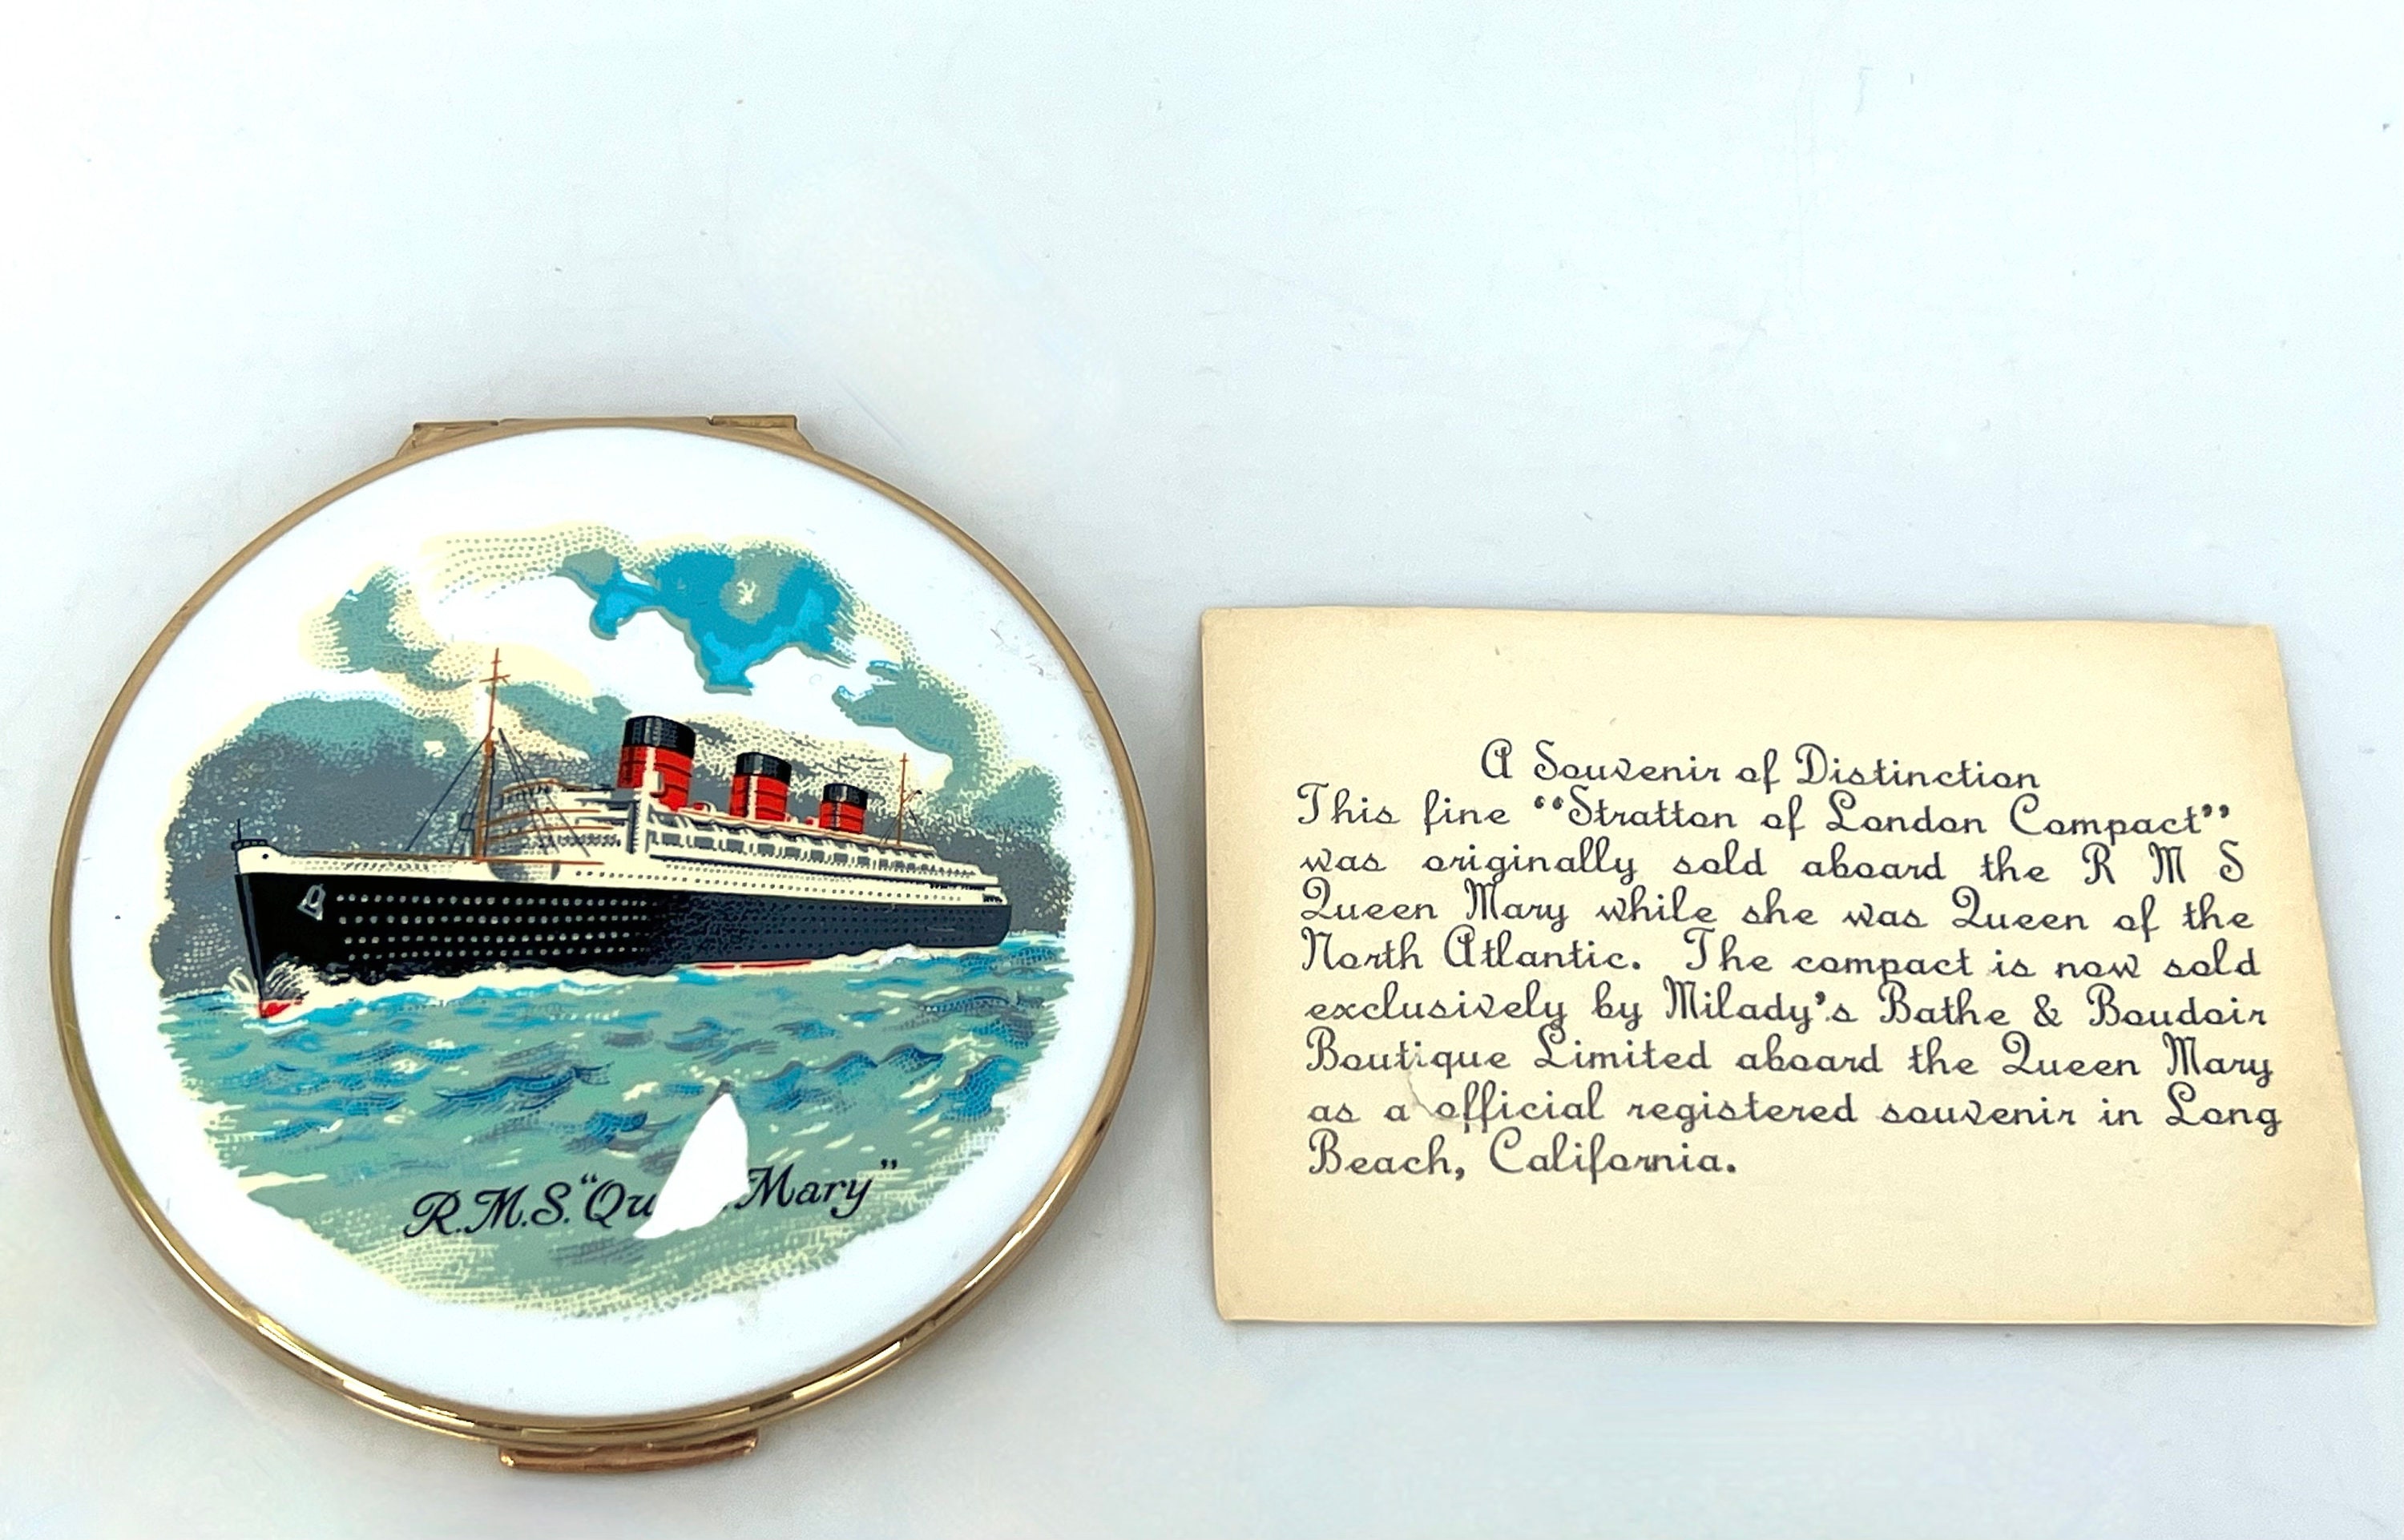 R.M.S. "Qu Mary"
A Souvenir of Distinction
This fine "Stratton of London Compact"
was originally sold aboard the R M S
Queen Mary while she was Queen of the
North Atlantic. The compact is now sold
exclusively by Milady's Bathe & Boudoir
Boutique Limited aboard the Queen Mary
as a official registered souvenir in Long
Beach, California.